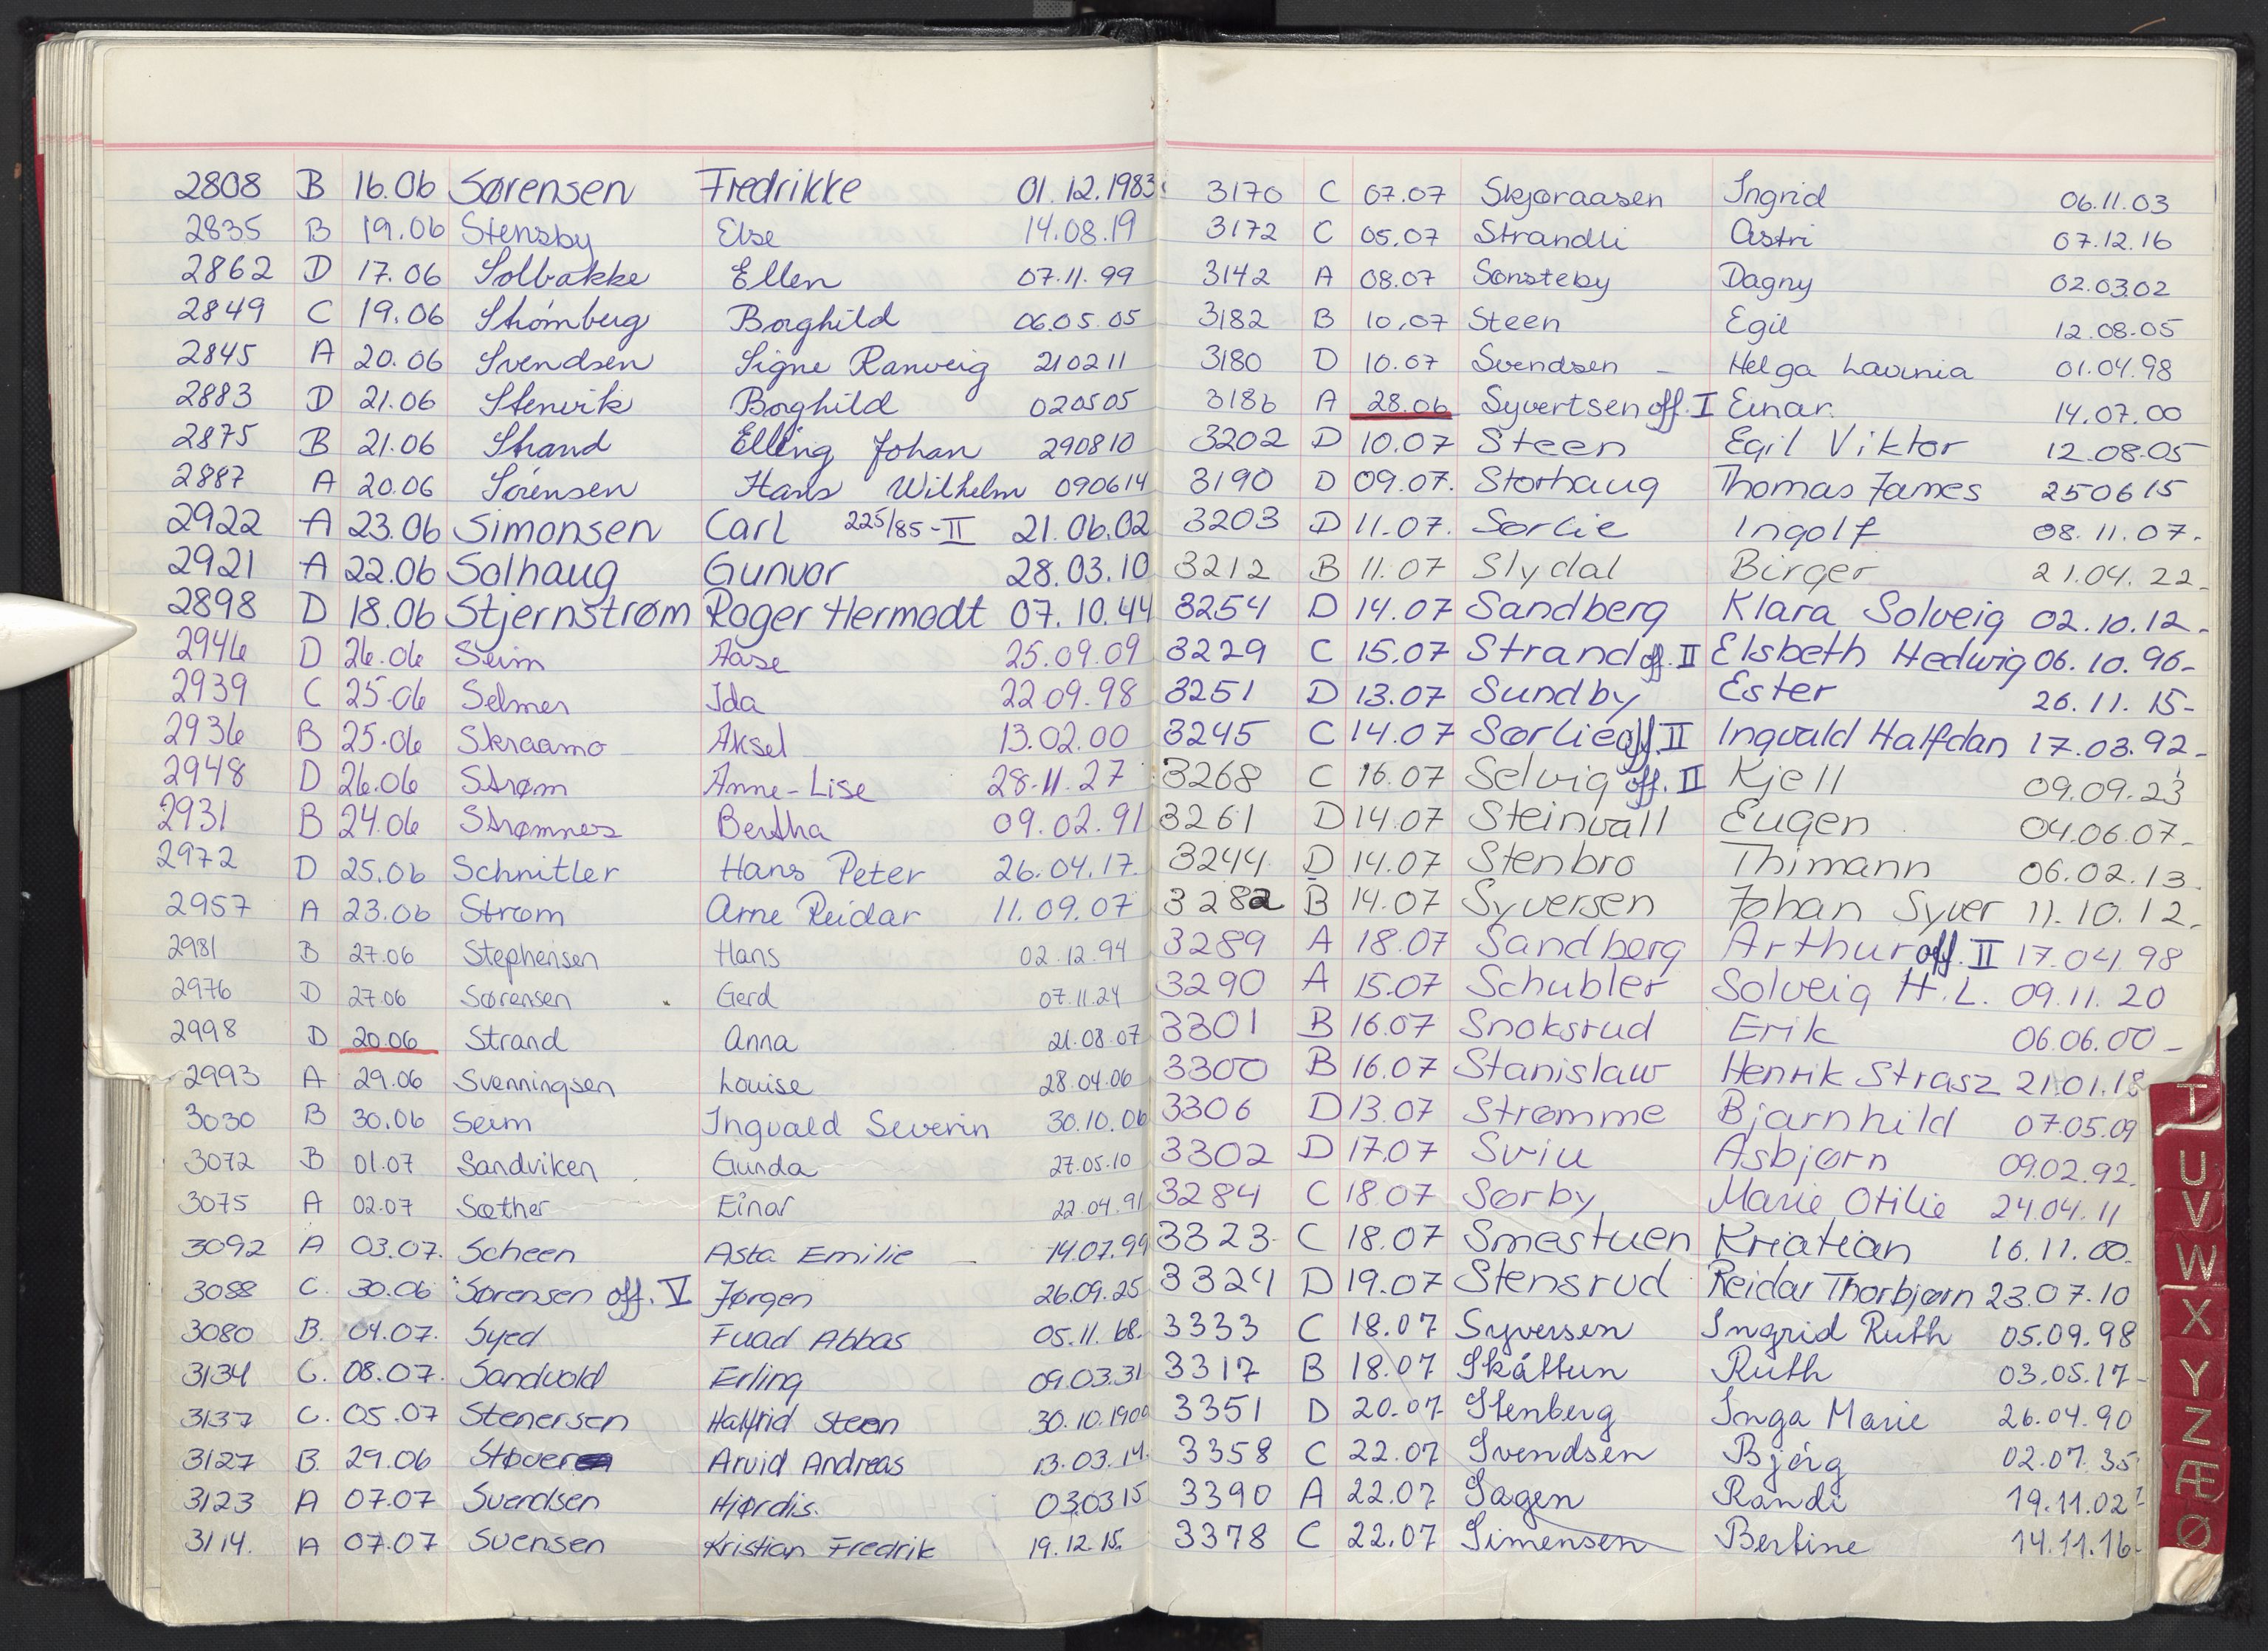 2808 B 16.06 Sørensen Fredrikke 01.12.1983
2835 B 19.06 Stensby Else 14.08.19
2862 D 17.06 Solbakke Ellen 07.11.99
2849 C 19.06 Strømberg Borghild 06.05.05
2845 A 20.06 Svendsen Signe Ranveig 210211
2883 D 21.06 Stenvik Borghild 020505
2875 B 21.06 Strand Elling Johan 290810
2887 A 20.06 Sørensen Hans Wilhelm 090614
2922 A 23.06 Simonsen Carl 225/85-II 21.06.02
2921 A 22.06 Solhaug Gunvor 28.03.10
2898 D 18.06 Stjernstrøm Roger Hermodt 07.10.44
2946 D 26.06 Seim Aase 25.09.09
2939 C 25.06 Selmer Ida 22.09.98
2936 B 25.06 Skraamo Aksel 13.02.00
2948 D 26.06 Strøm Anne-Lise 28.11.27
2931 B 24.06 Strømnes Bertha 09.02.91
2972 D 25.06 Schnitler Hans Peter 26.04.17
2957 A 23.06 Strøm Arne Reidar 11.09.07
2981 B 27.06 Stephensen Hans 02.12.94
2976 D 27.06 Sørensen Gerd 07.11.24
2998 D 20.06 Strand Anna 21.08.07
2993 A 29.06 Svenningsen Louise 28.04.06
3030 B 30.06 Seim Ingvald Severin 30.10.06
3072 B 01.07 Sandviken Gunda 27.05.10
3075 A 02.07 Sæther Einar 22.04.91
3092 A 03.07. Scheen Asta Emilie 14.07.99
3088 C. 30.06 Sørensen off. V Jørgen 26.09.25
3080 B. 04.07. Syed Fuad Abbas 05.11.68.
3134 C. 08.07. Sandvold Erling 09.03.31
3137 C. 05.07 Stenersen Halfrid Steen 30.10.1900
3127 B. 29.06 Støver Arvid Andreas 13.03.14.
3123 A 07.07 Svendsen Hjørdis. 030315
3114. A 07.07 Svensen Kristian Fredrik 19.12.15.
3170 C 07.07 Skjøraasen Ingrid 06.11.03
3172 C 05.07 Strandli Astri 07.12.16
3142 A 08.07 Sønsteby Dagny 02.03.02
3182 B 10.07 Steen Egil 12.08.05
3180 D 10.07 Svendsen Helga Lavinia 01.04.98
3186 A 28.06 Syvertsen off. I Einar. 14.07.00
3202 D 10.07 Steen Egil Viktor 12.08.05
3190 D 09.07. Storhaug Thomas James 250615
3203 D 11.07. Sørlie Ingolf 08.11.07.
3212 B 11.07 Slydal Birger 21.04.22
3254 D 14.07 Sandberg Klara Solveig 02.10.12
3229 C 15.07 Strand off. II Elsbeth Hedwig 06.10.96
3251 D 13.07 Sundby Ester 26.11.15
3245 C 14.07 Sørlie off. II Ingvald Halfdan 17.03.92
3268 C 16.07 Selvig off. II Kjell 09.09.23
3261 D 14.07 Steinvall Eugen 04.06.07
3244 D 14.07 Stenbro Thimann 06.02.13
3282 B 14.07 Syversen Johan Syver 11.10.12
3289 A 18.07 Sandberg Arthur off. II 17.04.98
3290 A 15.07 Schubler Solveig H.L. 09.11.20
3301 B 16.07 Snoksrud Erik 06.06.00
3300 B 16.07 Stanislaw Henrik Strasz 21.01.18
3306 D 13.07 Strømme Bjarnhild 07.05.09
3302 D 17.07 Sviu Asbjørn 09.02.92.
3284 C 18.07 Sørby Marie Otilie 24.04.11
3323 C 18.07 Smestuen Kriatian 16.11.00
3324 D 19.07 Stensrud Reidar Thorbjørn 23.07.10
3333 C 18.07 Syversen Ingrid Ruth 05.09.98
3317 B 18.07 Skåttun Ruth 03.05.17
3351 D 20.07 Stenberg Inga Marie 26.04.90
3358 C 22.07 Svendsen Bjørg 02.07.35
3390 A 22.07 Sagen Randi 19.11.02
3378 C 22.07 Simensen Bertine 14.11.16
T
U
V
W
X
Y
Z
Æ
Ø